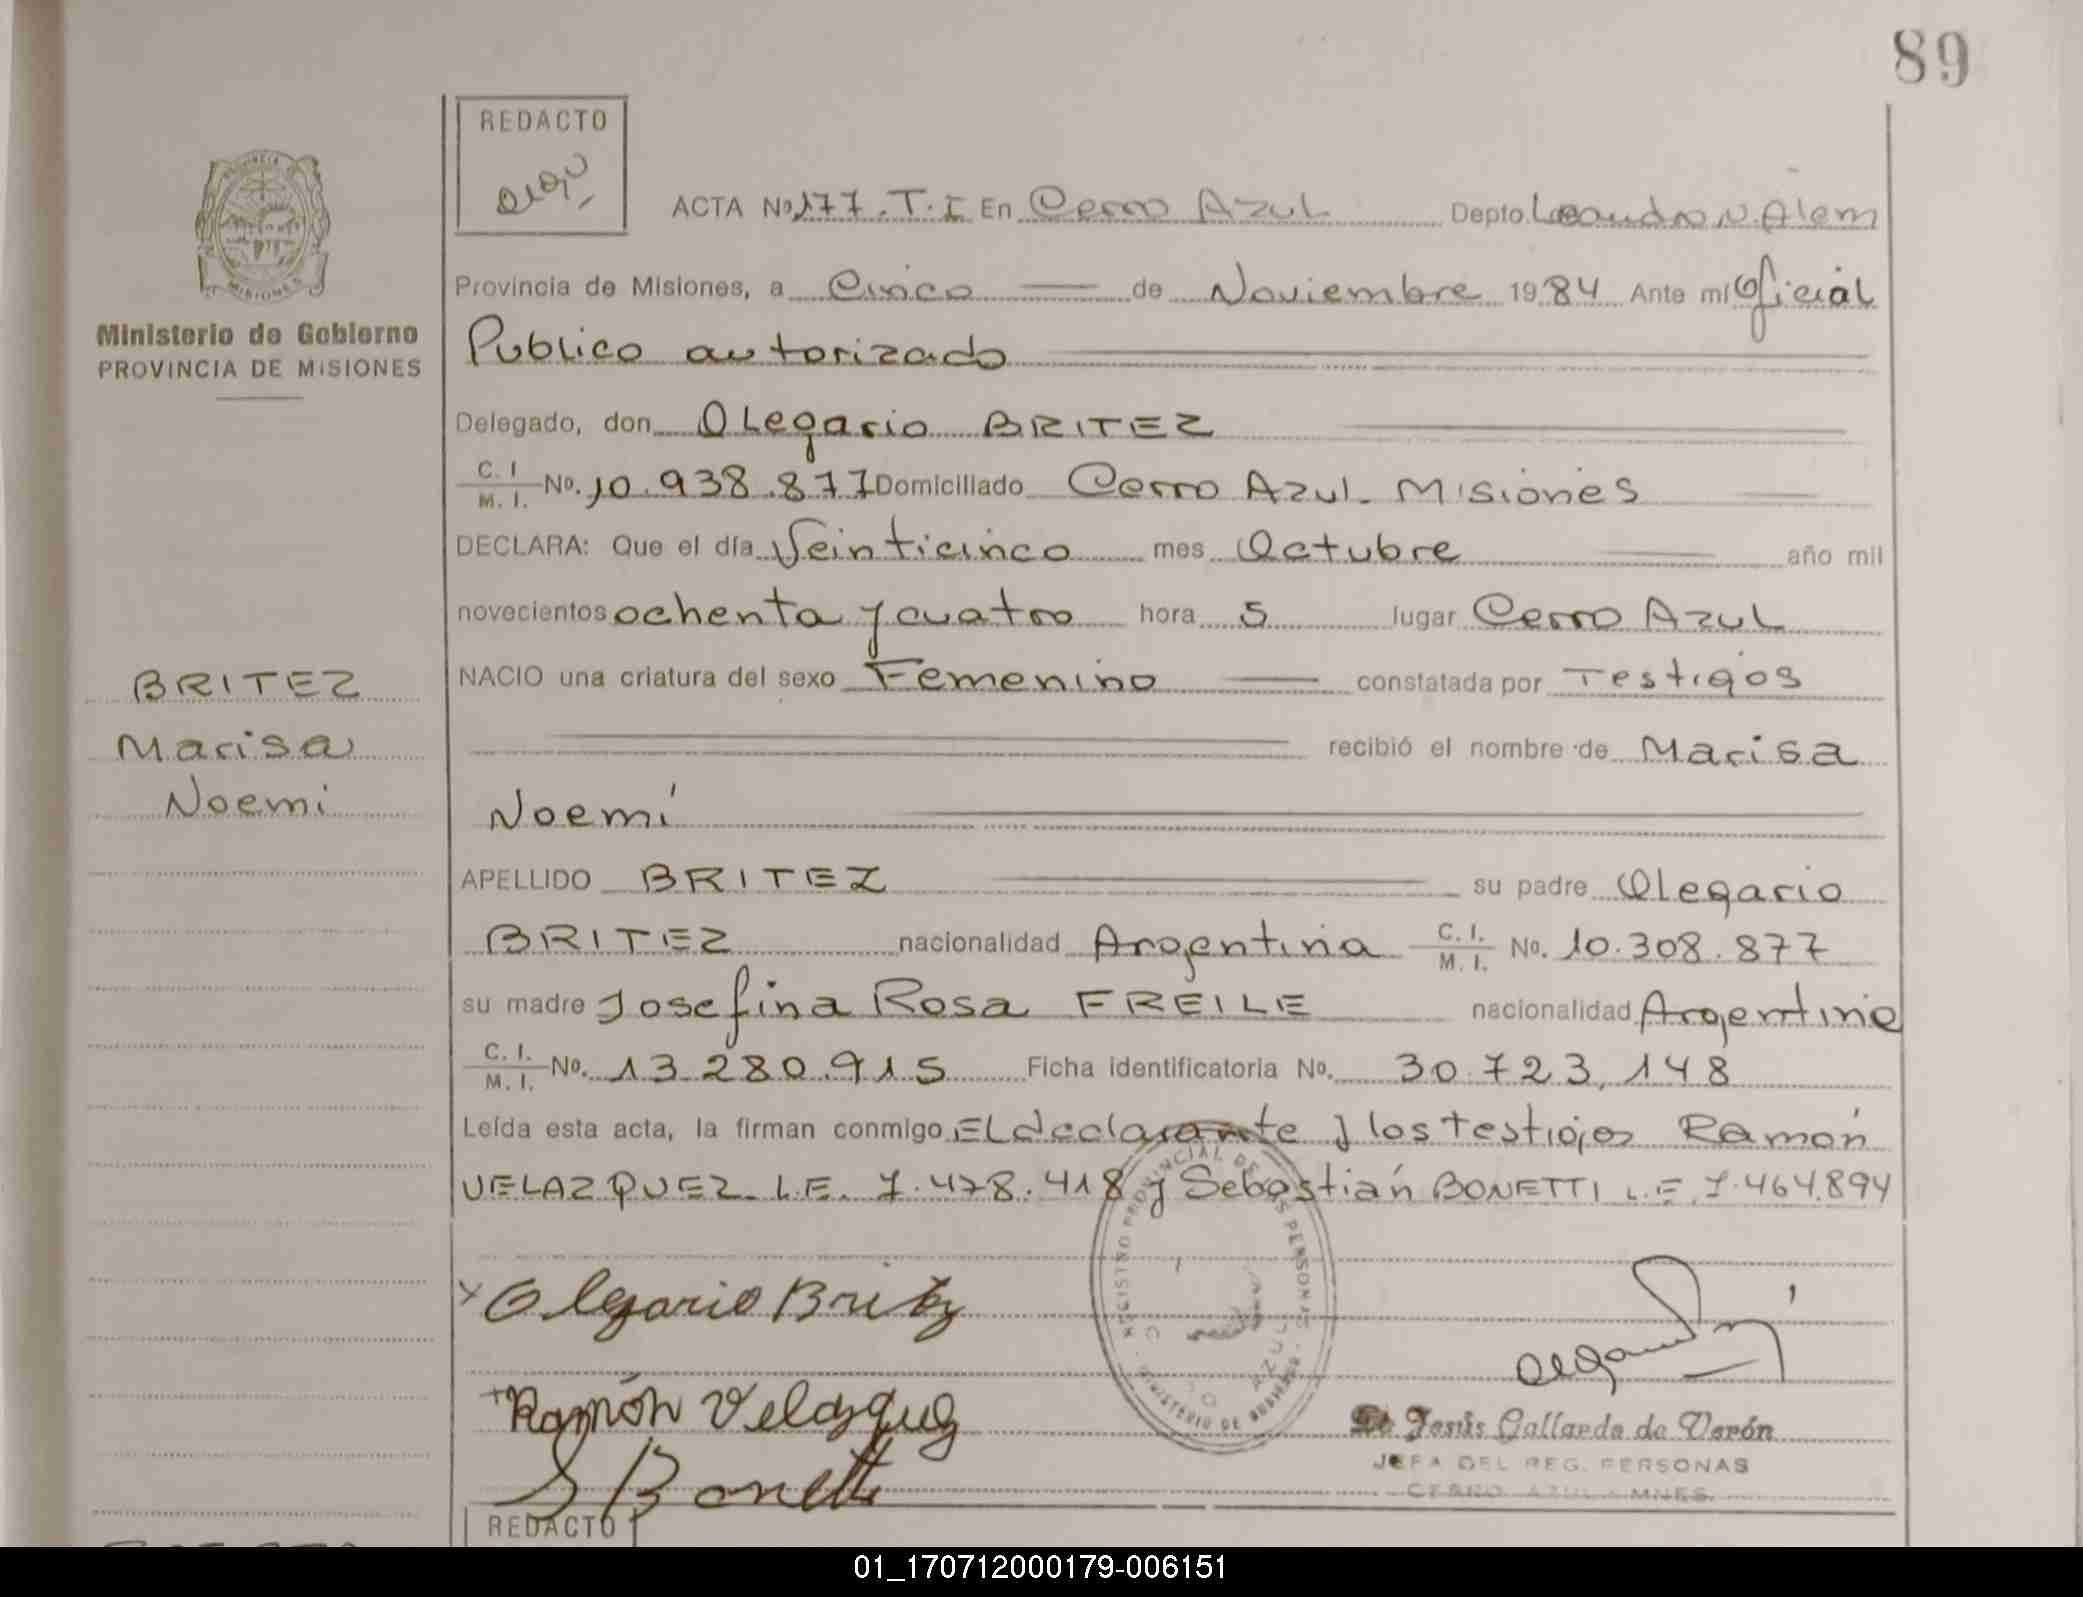 89
REDACTO
ACTA Nº 177. T. I En Cerro Azul Depto. Leandro N. Alem
Provincia de Misiones, a Cinco de Noviembre 1984 Ante mí Oficial
Publico autorizado
Delegado, don Olegario BRITEZ
C. I. / M. I. No. 10.938.877 Domiciliado Cerro Azul. Misiones
DECLARA: Que el día Veinticinco mes Octubre año mil
novecientos ochenta y cuatro hora 5 lugar Cerro Azul
NACIO una criatura del sexo Femenino constatada por Testigos
recibió el nombre de Marisa
Noemí
APELLIDO BRITEZ su padre Olegario
BRITEZ nacionalidad Argentina C. I. / M. I. No. 10.308.877
su madre Josefina Rosa FREILE nacionalidad Argentina
C. I. / M. I. No. 13.280.915 Ficha identificatoria No. 30.723.148
Leída esta acta, la firman conmigo El declarante y los testigos Ramón
VELAZQUEZ L.E. 7.478.418 y Sebastián BONETTI L.E. 7.464.894
Olegario Britez
Ramón Velazquez
S Bonetti
REGISTRO PROVINCIAL DE LAS PERSONAS
MINISTERIO DE GOBIERNO
Jesús Gallardo de Verón
JEFA DEL REG. PERSONAS
CERRO AZUL MNES.
PROVINCIA
MISIONES
Ministerio de Gobierno
PROVINCIA DE MISIONES
BRITEZ
Marisa
Noemi
REDACTO
01_170712000179-006151